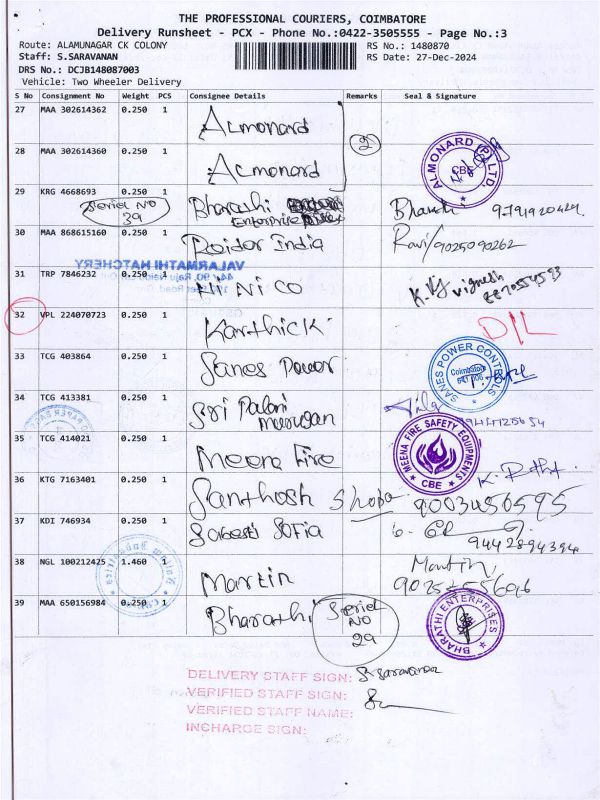 THE PROFESSIONAL COURIERS, COIMBATORE
Delivery Runsheet - PCX - Phone No.:0422-3505555 - Page No.:3
Route: ALAMUNAGAR CK COLONY
RS No.: 1480870
Staff: S.SARAVANAN
RS Date: 27-Dec-2024
DRS No.: DCJB148087003
Vehicle: Two Wheeler Delivery
S No Consignment No Weight PCS Consignee Details Remarks Seal & Signature
27 MAA 302614362 0.250 1 Almonard
2
28 MAA 302614360 0.250 1 Almonard
ALMONARD (P) LTD CBE
29 KRG 4668693 0.250 1 Bharathi
Enterprise
Seriel No
39
30 MAA 868615160 0.250 1 Raidor India Ravi/9025090262
VALARMATHI HATCHERY
31 TRP 7846232 0.250 1 Hi Ni CO K. Vignesh
32 VPL 224070723 0.250 1 Karthick D/L
33 TCG 403864 0.250 1 Sanes Power
SANES POWER CONTROLS Coimbatore
34 TCG 413381 0.250 1 Sri Palani
Murugan
35 TCG 414021 0.250 1 Meena Fire
MEENA FIRE SAFETY EQUIPMENTS CBE
36 KTG 7163401 0.250 1 Santhosh Shopa 9003456595
37 KDI 746934 0.250 1 Sabesti Sofia
9442894394
38 NGL 100212425 1.460 1 Martin Martin
39 MAA 650156984 0.250 1 Bharathi Seriel
NO
29
BHARATHI ENTERPRISES
DELIVERY STAFF SIGN: S. Saravanan
VERIFIED STAFF SIGN:
VERIFIED STAFF NAME:
INCHARGE SIGN: